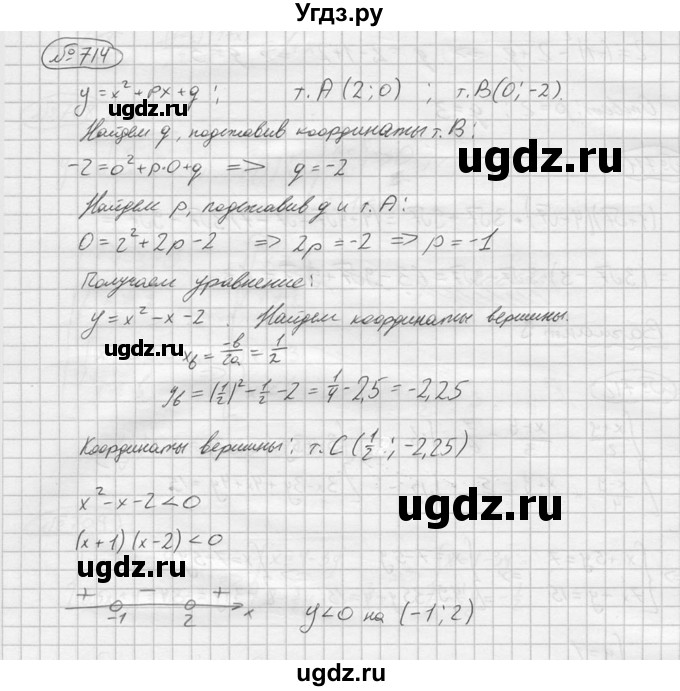 Угдз.ру
№714
y = x² + px + q ; т. A (2; 0) ; т. B(0; -2)
Найдем q, подставив координаты т. B:
-2 = 0² + p·0 + q => q = -2
ugdz.ru
Найдем p, подставив q и т. A:
0 = 2² + 2p - 2 => 2p = -2 => p = -1
ugdz.ru
Получаем уравнение:
y = x² - x - 2 . Найдем координаты вершины.
ugdz.ru
x_в = -в/2a = 1/2
y_в = (1/2)² - 1/2 - 2 = 1/4 - 2,5 = -2,25
Координаты вершины: т. C (1/2; -2,25)
x² - x - 2 < 0
ugdz.ru
(x + 1)(x - 2) < 0
ugdz.ru
+ - +
-1 2 x
y < 0 на (-1; 2)
ugdz.ru